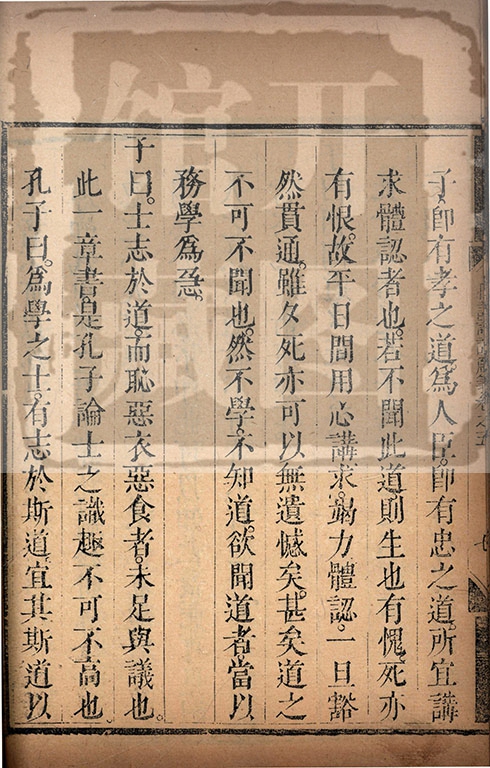 子。即有孝之道。為人臣。即有忠之道。所宜講
求體認者也。若不聞此道。則生也有愧。死亦
有恨。故平日間用心講求。竭力體認。一旦豁
然貫通。雖夕死亦可以無遺憾矣。甚矣道之
不可不聞也。然不學。不知道。欲聞道者。當以
務學為急。
子曰。士志於道。而恥惡衣惡食者。未足與議也。
此一章書。是孔子論士之識趣不可不高也。
孔子曰。為學之士。有志於斯道。宜其斯道以